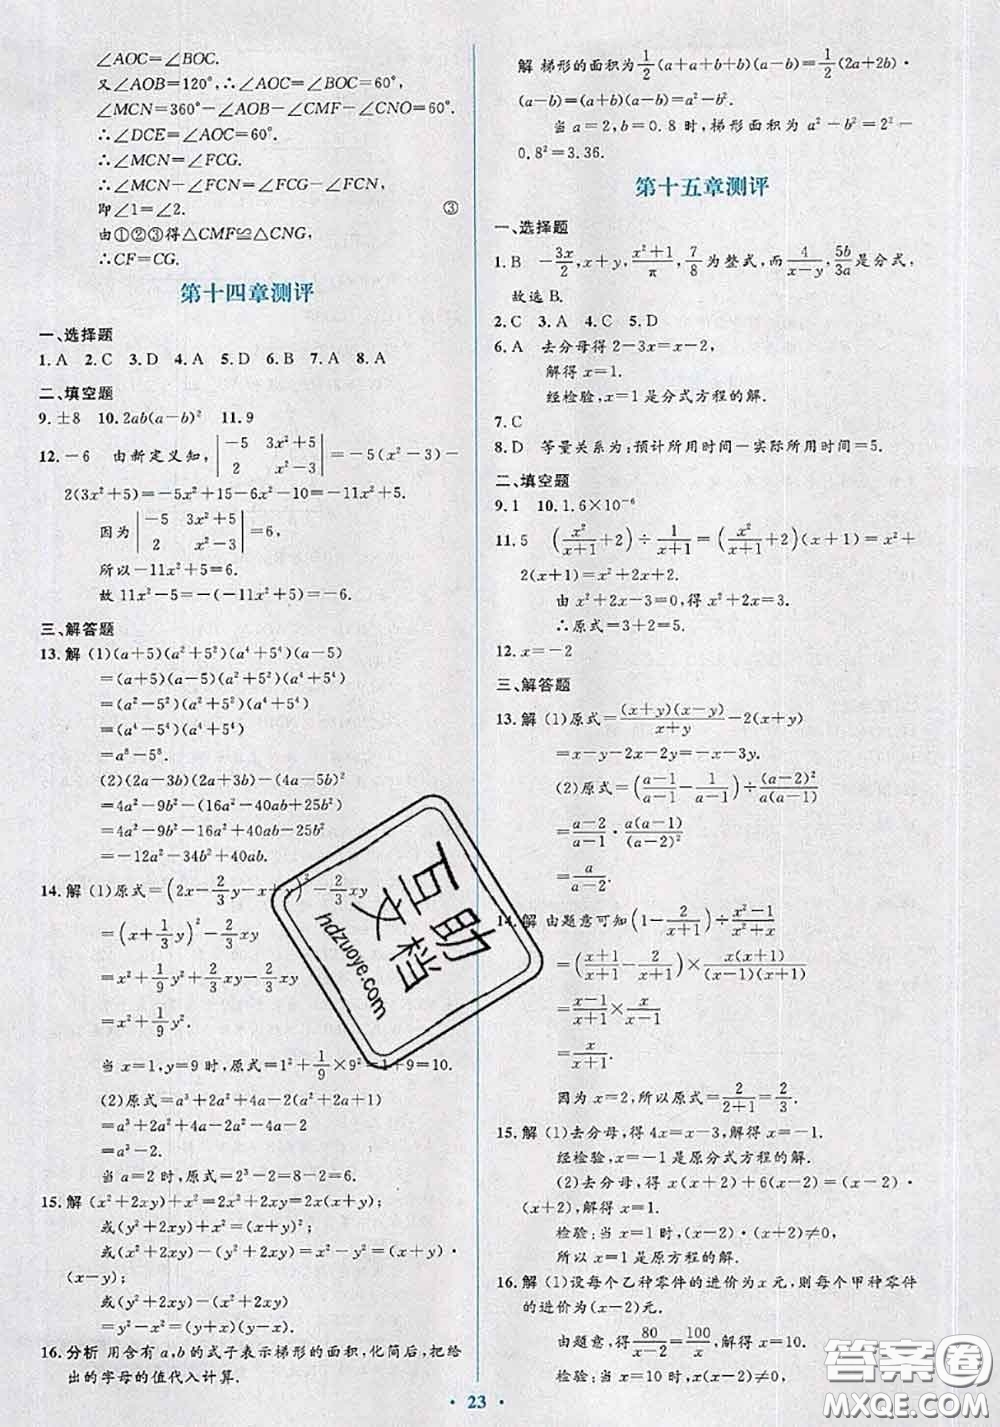 ∠AOC=∠BOC.
又∠AOB=120°,∴∠AOC=∠BOC=60°,
∠MCN=360°-∠AOB-∠CMF-∠CNO=60°.
∴∠DCE=∠AOC=60°.
∴∠MCN=∠FCG.
∴∠MCN-∠FCN=∠FCG-∠FCN,
即∠1=∠2. ③
由①②③得△CMF≌△CNG,
∴CF=CG.
第十四章测评
一、选择题
1. A 2. C 3. D 4. A 5. D 6. B 7. A 8. A
二、填空题
9. ±8 10. 2ab(a-b)² 11. 9
12. -6 由新定义知, |-5 3x²+5; 2 x²-3| =-5(x²-3)-
2(3x²+5)=-5x²+15-6x²-10=-11x²+5.
因为 |-5 3x²+5; 2 x²-3| =6,
所以-11x²+5=6.
故 11x²-5=-(-11x²+5)=-6.
三、解答题
13. 解 (1)(a+5)(a²+5²)(a⁴+5⁴)(a-5)
=(a+5)(a-5)(a²+5²)(a⁴+5⁴)
=(a²-5²)(a²+5²)(a⁴+5⁴)
=(a⁴-5⁴)(a⁴+5⁴)
=a⁸-5⁸.
(2)(2a-3b)(2a+3b)-(4a-5b)²
=4a²-9b²-(16a²-40ab+25b²)
=4a²-9b²-16a²+40ab-25b²
=-12a²-34b²+40ab.
14. 解 (1)原式=(2x-2/3y-x+y)²-2/3xy
=(x+1/3y)²-2/3xy
=x²+1/9y²+2/3xy-2/3xy
=x²+1/9y².
当 x=1,y=9 时,原式=1²+1/9×9²=1+9=10.
(2)原式=a³+2a²+4a-2(a²+2a+1)
=a³+2a²+4a-2a²-4a-2
=a³-2.
当 a=2 时,原式=2³-2=8-2=6.
15. 解 (x²+2xy)+x²=2x²+2xy=2x(x+y);
或(y²+2xy)+x²=(x+y)²;
或(x²+2xy)-(y²+2xy)=x²-y²=(x+y)·
(x-y);
或(y²+2xy)-(x²+2xy)
=y²-x²=(y+x)(y-x).
16. 分析 用含有 a,b 的式子表示梯形的面积,化简后,把给
出的字母的值代入计算.
解 梯形的面积为1/2(a+a+b+b)(a-b)=1/2(2a+2b)·
(a-b)=(a+b)(a-b)=a²-b².
当 a=2,b=0.8 时,梯形面积为 a²-b²=2²-
0.8²=3.36.
第十五章测评
一、选择题
1. B -3x/2,x+y,(x²+1)/π,7/8为整式,而4/(x-y),5b/3a是分式,
故选 B.
2. C 3. A 4. C 5. D
6. A 去分母得 2-3x=x-2,
解得 x=1.
经检验,x=1 是分式方程的解.
7. C
8. D 等量关系为:预计所用时间-实际所用时间=5.
二、填空题
9. 1 10. 1.6×10⁻⁶
11. 5 (x²/(x+1)+2)÷1/(x+1)=(x²/(x+1)+2)(x+1)=x²+
2(x+1)=x²+2x+2.
由 x²+2x-3=0,得 x²+2x=3.
∴原式=3+2=5.
12. x=-2
三、解答题
13. 解 (1)原式=(x+y)(x-y)/(x+y)-2(x+y)
=x-y-2x-2y=-x-3y.
(2)原式=((a-1)/(a-1)-1/(a-1))÷(a-2)²/a(a-1)
=(a-2)/(a-1)·a(a-1)/(a-2)²
=a/(a-2).
14. 解 由题意可知(1-2/(x+1))÷(x²-1)/(x²+x)
=((x+1)/(x+1)-2/(x+1))×x(x+1)/(x-1)(x+1)
=(x-1)/(x+1)×x/(x-1)
=x/(x+1).
因为 x=2,所以原式=2/(2+1)=2/3.
15. 解 (1)去分母,得 4x=x-3,解得 x=-1.
经检验,x=-1 是原分式方程的解.
(2)去分母,得 x(x+2)+6(x-2)=(x-2)·
(x+2),解得 x=1.
检验:当 x=1 时,(x-2)·(x+2)≠0,
所以 x=1 是原方程的解.
16. 解 (1)设每个乙种零件的进价为 x 元,则每个甲种零件
的进价为(x-2)元.
由题意,得80/(x-2)=100/x,解得 x=10.
检验:当 x=10 时,x(x-2)≠0,
· 23 ·
互助文档
hdzuoye.com
答案圈
MXQE.COM